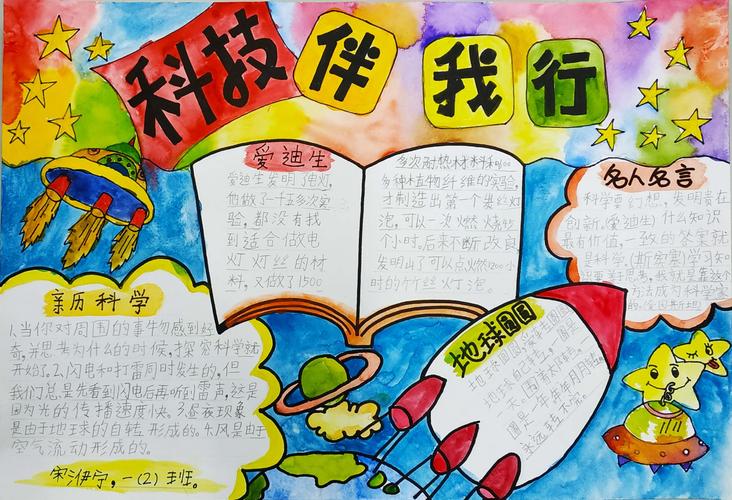 科技伴我行
爱迪生
爱迪生发明了电灯,
他做了一千五多次实
验,都没有找
到适合做电
灯灯丝的材
料,又做了1500
多次耐热材料和600
多种植物纤维的实验,
才制造出第一个炭丝灯
泡,可以一次燃烧45
个小时。后来不断改良
发明出了可以点燃1200小
时的竹丝灯泡。
名人名言
科学要幻想,发明贵在
创新。(爱迪生)什么知识
最有价值,一致的答案就
是科学。(斯宾塞)学习知
识要善于思考,我就是靠这个
方法成为科学家
的。(爱因斯坦)
亲历科学
1.当你对周围的事物感到好
奇,并思考为什么的时候,探究科学就
开始了。2.闪电和打雷同时发生的,但
我们总是先看到闪电后再听到雷声,这是
因为光的传播速度快。3.昼夜现象
是由于地球的自转形成的。4.风是由于
空气流动形成的。
宋泋宁,一(2)班。
地球圆圆
地球
一天。围着太阳转
圈是一年,年年月月
永远转不停。